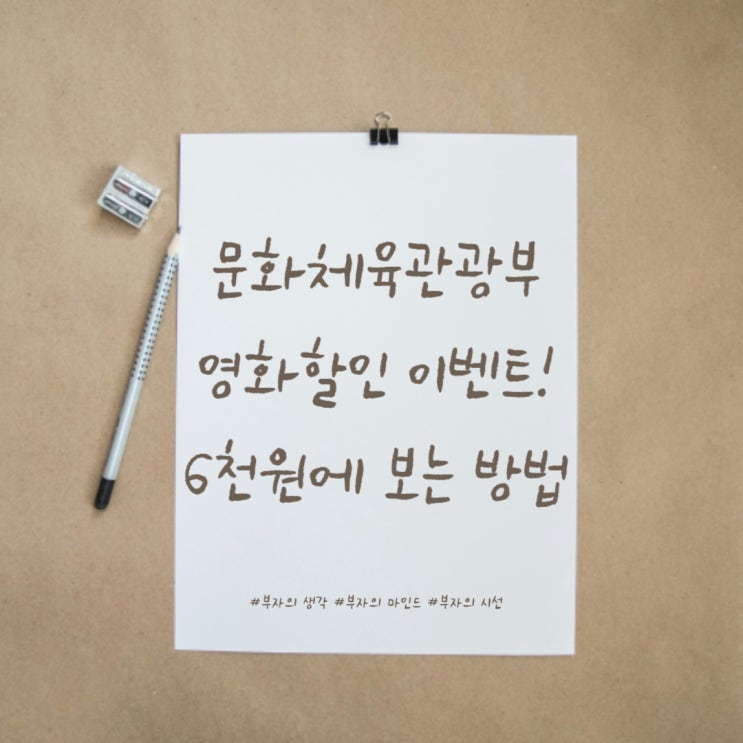 문화체육관광부
영화할인 이벤트!
6천원에 보는 방법
#부자의 생각 #부자의 마인드 #부자의 시선